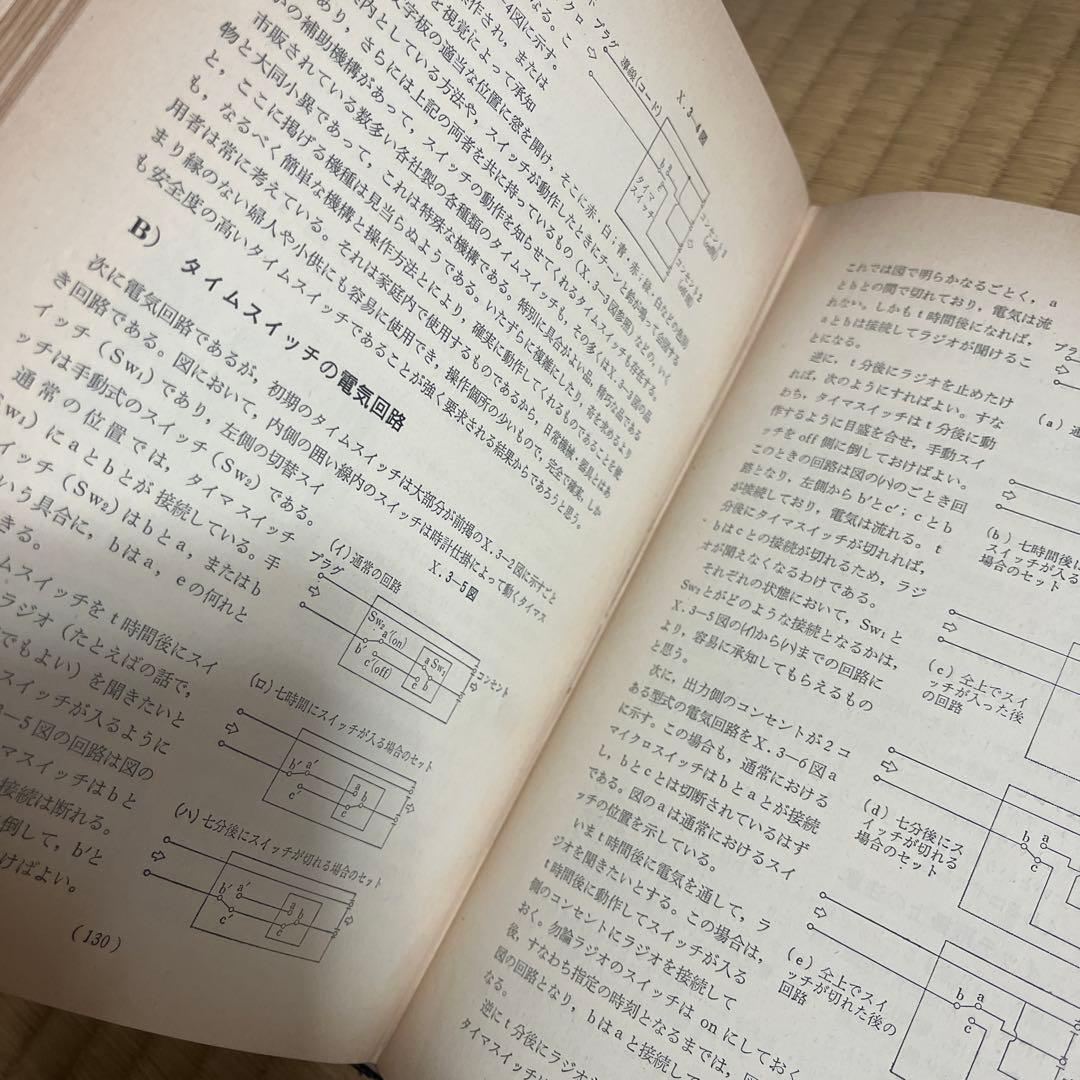 プラグ
導線(コード)
X.3—4図
タイマ
スイッチ
コンセント1
コンセント2
—4図に示す。
作され,または
を視覚によって承知
文字板の適当な位置に窓を開け,そこに赤・白;青・赤;緑・白などの色
案内としている方法や,スイッチが動作したときにチーンと鈴が鳴って
あり,さらには上記の両者を共に持っているもの(X.3—3図参照)などの,
の補助機構があって,スイッチの動作を知らせてくれるタイムスイッチも存在する。
市販されている数多い各社製の各種類のタイムスイッチも,その多くはX.3—3図の品
物と大同小異であって,これは特殊な機構である。特別に具合がよい品,精巧な品である
と,ここに掲げる機種は見当らぬようである。いたずらに複雑にしたり,奇を求めるより
も,なるべく簡単な機構と操作方法とにより,確実に動作してくれるものであることを使
用者は常に考えている。それは家庭内で使用するものであるから,日常機械・器具とはあ
まり縁のない婦人や小供にも容易に使用でき,操作個所の少いもので,完全で確実,しか
も安全度の高いタイムスイッチであることが強く要求される結果からであろうと思う。
B) タイムスイッチの電気回路
次に電気回路であるが,初期のタイムスイッチは大部分が前掲のX.3—2図に示すごと
き回路である。図において,内側の囲い線内のスイッチは時計仕掛によって動くタイマス
イッチ(Sw₁)であり,左側の切替スイ
ッチは手動式のスイッチ(Sw₂)である。
通常の位置では,タイマスイッチ
Sw₁)にaとbとが接続している。手
イッチ(Sw₂)はbとa,またはb
いう具合に,bはa,eの何れと
きる。
ムスイッチをt時間後にスイ
ラジオ(たとえばの話で,
でもよい)を聞きたいと
スイッチが入るように
3—5図の回路は図の
マスイッチはbと
接続は断れる。
倒して,b′と
けばよい。
X.3—5図
(イ)通常の回路
プラグ
Sw₂
a′(on)
b′
c′(off)
a Sw₁
b
c
コンセント
(ロ)七時間にスイッチが入る場合のセット
b′ a′
c′
a
b
c
(ハ)七分後にスイッチが切れる場合のセット
b′ a′
c′
a
b
c
(130)
これでは図で明らかなるごとく,a
とbとの間で切れており,電気は流
れない。しかもt時間後になれば,
aとbは接続してラジオが聞けるこ
とになる。
逆に,t分後にラジオを止めたけ
れば,次のようにすればよい。すな
わち,タイマスイッチはt分後に動
作するように目盛を合せ,手動スイ
ッチをoff側に倒しておけばよい。
このときの回路は図の(ハ)のごとき回
路となり,左側からb′とc′;cとb
が接続しており,電気は流れる。t
分後にタイマスイッチが切れれば,
bはcとの接続が切れるため,ラジ
オが聞えなくなるわけである。
それぞれの状態において,Sw₁と
Sw₂とがどのような接続となるかは,
X.3—5図の(イ)から(ハ)までの回路に
より,容易に承知してもらえるもの
と思う。
次に,出力側のコンセントが2コ
ある型式の電気回路をX.3—6図a
に示す。この場合も,通常における
マイクロスイッチはbとaとが接続
し,bとcとは切断されているはず
である。図のaは通常におけるスイ
ッチの位置を示している。
いまt時間後に電気を通して,ラ
ジオを聞きたいとする。この場合は,
t時間後に動作してスイッチが入る
側のコンセントにラジオを接続して
おく。勿論ラジオのスイッチはonにしておく
後,すなわち指定の時刻となるまでは,図
図の回路となり,bはaと接続して
なる。
逆にt分後にラジオ
タイマスイッチは
プラ
(a)通
(b)七時間後に
スイッチが入る
場合のセット
(c)仝上でスイ
ッチが入った後
の回路
(d)七分後にス
イッチが切れる
場合のセット
b a
c
(e)仝上でスイ
ッチが切れた後の
回路
b a
c